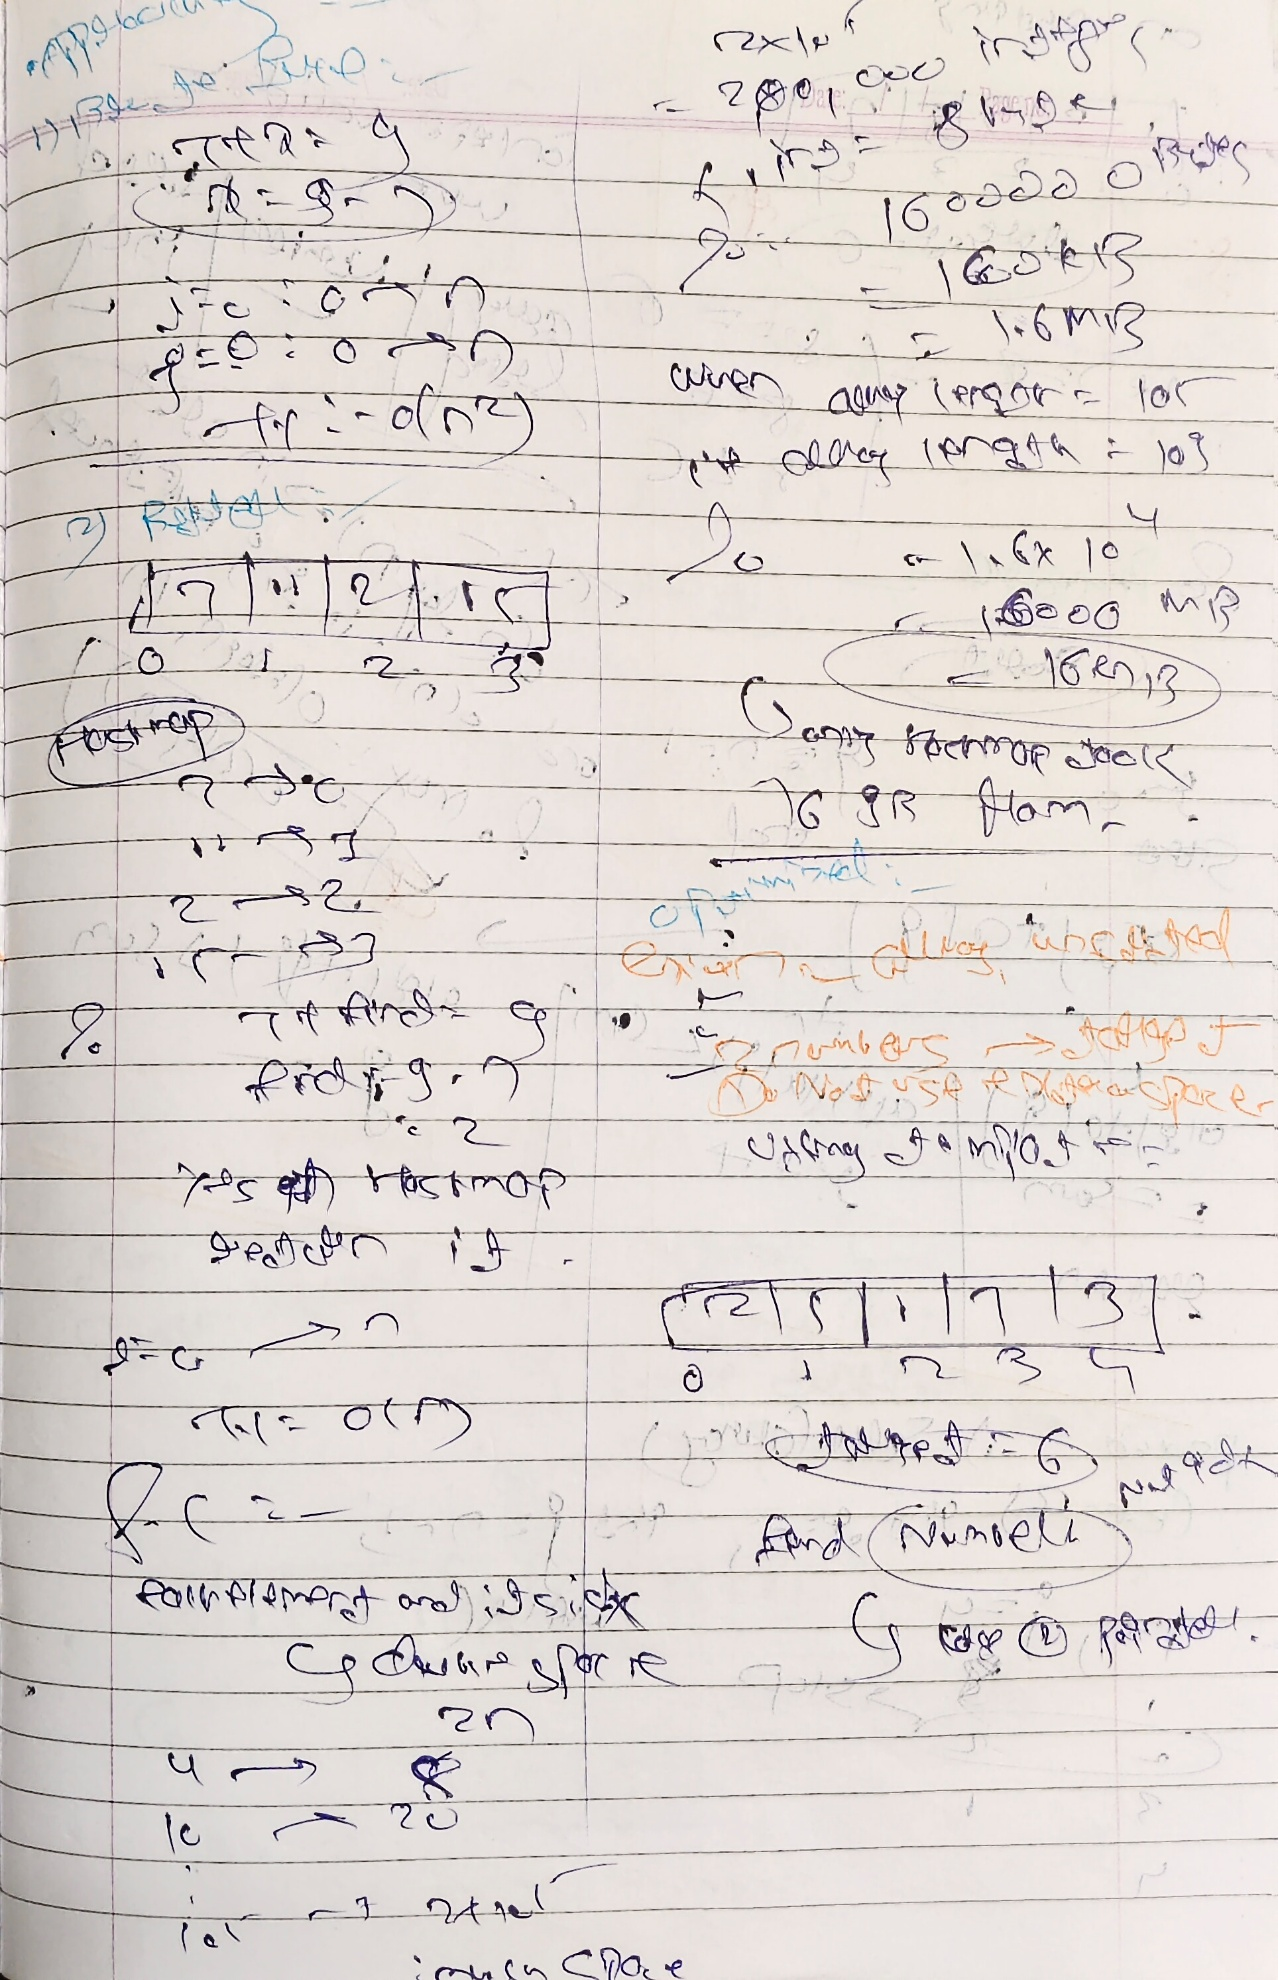 Approach
1) Brute Force :-
7 + x = 9
x = 9 - 7
i = 0 : 0 → n
j = 0 : 0 → n
T.C :- O(n²)
2) Better :-
7 | 11 | 2 | 15
0 1 2 3
Hashmap
7 → 0
11 → 1
2 → 2
15 → 3
7 + find = 9
find = 9 - 7
= 2
Yes Hashmap
return it .
i = 0 → n
T.C = O(n)
S.C :-
each element and its index
double space
2n
4 → 8
10 → 20
10⁵ → 2 × 10⁵
space
2 × 10⁵ integers
= 200,000
1 int = 8 byte
1600000 Bytes
= 1600 KB
= 1.6 MB
when array length = 10⁵
if array length = 10⁹
= 1.6 × 10⁴
= 16000 MB
= 16
only Hashmap took
16 GB Ram
optimised :-
Given array, unsorted
2 numbers → target
Do Not use extra space
2 | 5 | 1 | 7 | 3
0 1 2 3 4
target = 6
find Number
use 2 pointer.